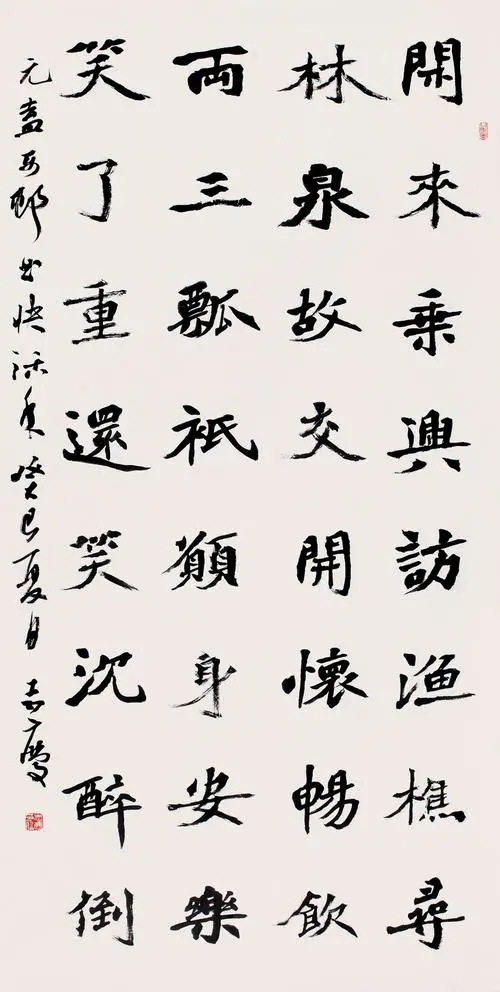 閑來乘興訪漁樵尋
林泉故交開懷暢飲
両三瓢祇願身安樂
笑了重還笑沈醉倒
元盍西邨曲快活年癸巳夏月慶